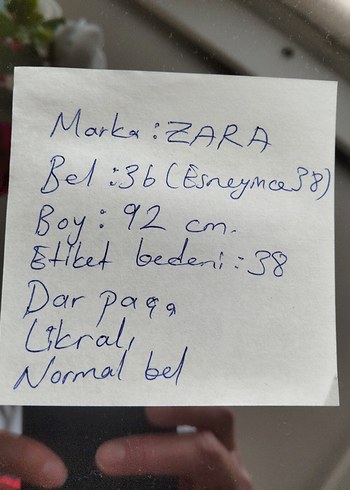 Marka : ZARA
Bel : 36 (Esneyince 38)
Boy : 92 cm.
Etiket bedeni : 38
Dar paça
Likralı
Normal bel